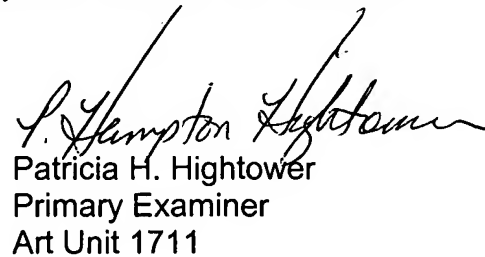 P. Hampton Hightower
Patricia H. Hightower
Primary Examiner
Art Unit 1711